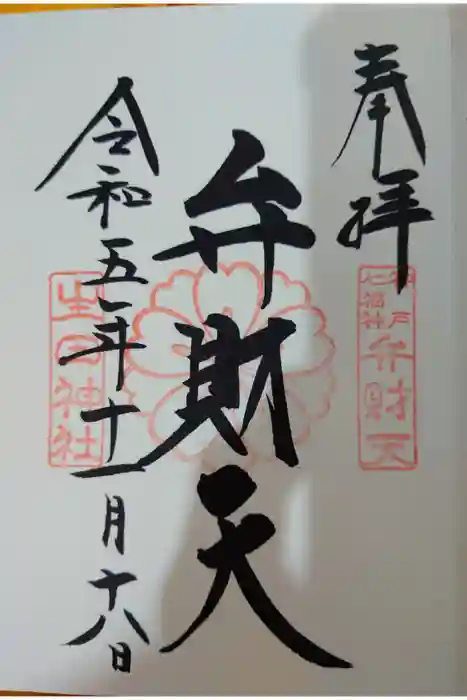 奉拝
神戸七福神
弁財天
弁財天
令和五年十一月十八日
生田神社